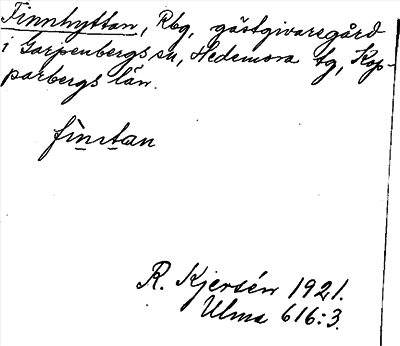 Finnhyttan, Rbg, gästgivaregård
i Garpenbergs sn, Hedemora tg, Kop-
parbergs län.
finstan
R. Kjersén 1921.
Ulma 616:3.